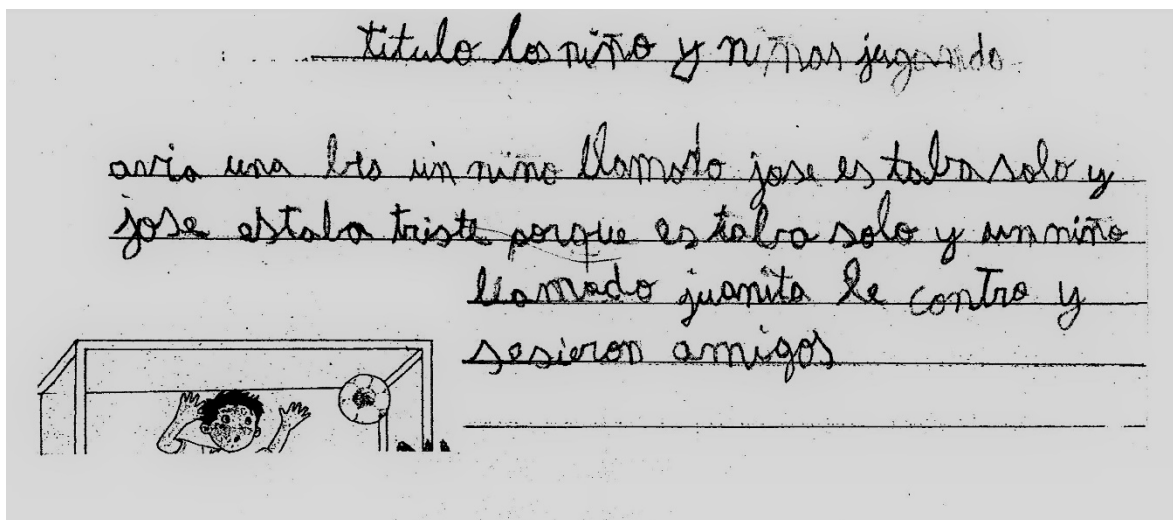 titulo los niño y niñas jugando
avia una bes un niño llamado jose es taba solo y
jose estaba triste porque es taba solo y un niño
llamado juanita le contro y
sesieron amigos